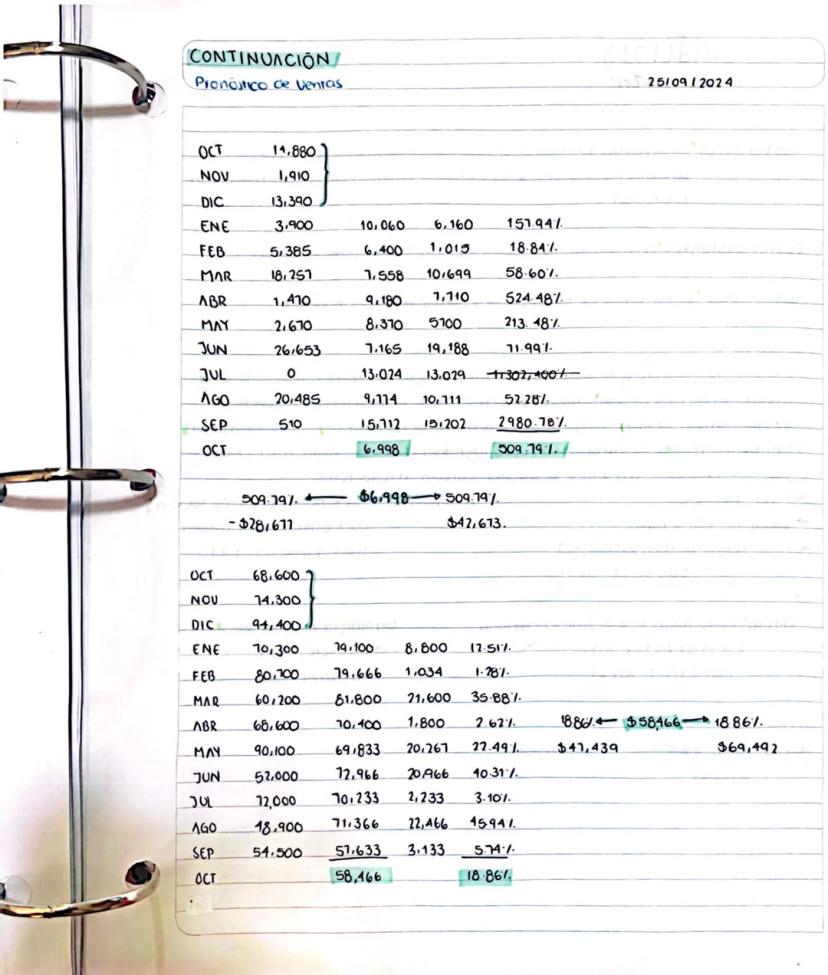 CONTINUACIÓN
Pronóstico de Ventas
25/09/2024
OCT 14,880
NOV 1,910
DIC 13,390
ENE 3,900 10,060 6,160 157.94%
FEB 5,385 6,400 1,015 18.84%
MAR 18,257 7,558 10,699 58.60%
ABR 1,470 9,180 7,710 524.48%
MAY 2,670 8,370 5700 213.48%
JUN 26,653 7,465 19,188 71.99%
JUL 0 13,024 13,024 1,302,400%
AGO 20,485 9,774 10,711 52.28%
SEP 510 15,712 15,202 2980.78%
OCT 6,998 509.79%
509.79% ← $6,998 → 509.79%
-$28,677 $42,673.
OCT 68,600
NOV 74,300
DIC 94,400
ENE 70,300 79,100 8,800 12.51%
FEB 80,700 79,666 1,034 1.28%
MAR 60,200 81,800 21,600 35.88%
ABR 68,600 70,400 1,800 2.62% 18.86% ← $58,466 → 18.86%
MAY 90,100 69,833 20,267 22.49% $47,439 $69,492
JUN 52,000 72,966 20,966 40.31%
JUL 72,000 70,233 2,233 3.10%
AGO 48,900 71,366 22,466 45.94%
SEP 54,500 57,633 3,133 5.74%
OCT 58,466 18.86%